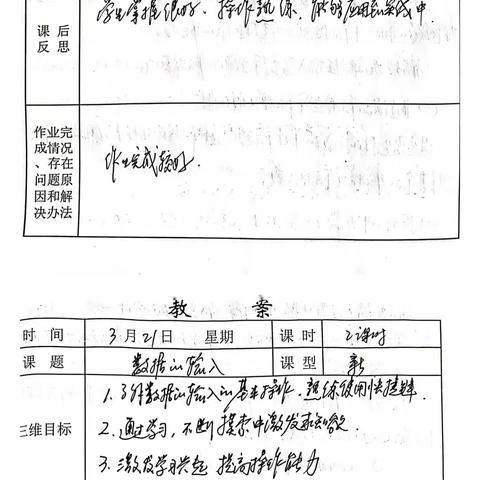 学生掌握很好、操作熟练，能够应用到实践中
课后
反思
作业完
成情况
、存在
问题原
因和解
决办法
作业完成较好.
教 案
时 间 3月21日 星期 课 时 2课时
课 题 数据的输入 课 型 新
三维目标
1.了解数据的输入的基本操作.熟练使用快捷键.
2.通过学习,不断摸索中激发求知欲.
3.激发学习兴趣 提高操作能力